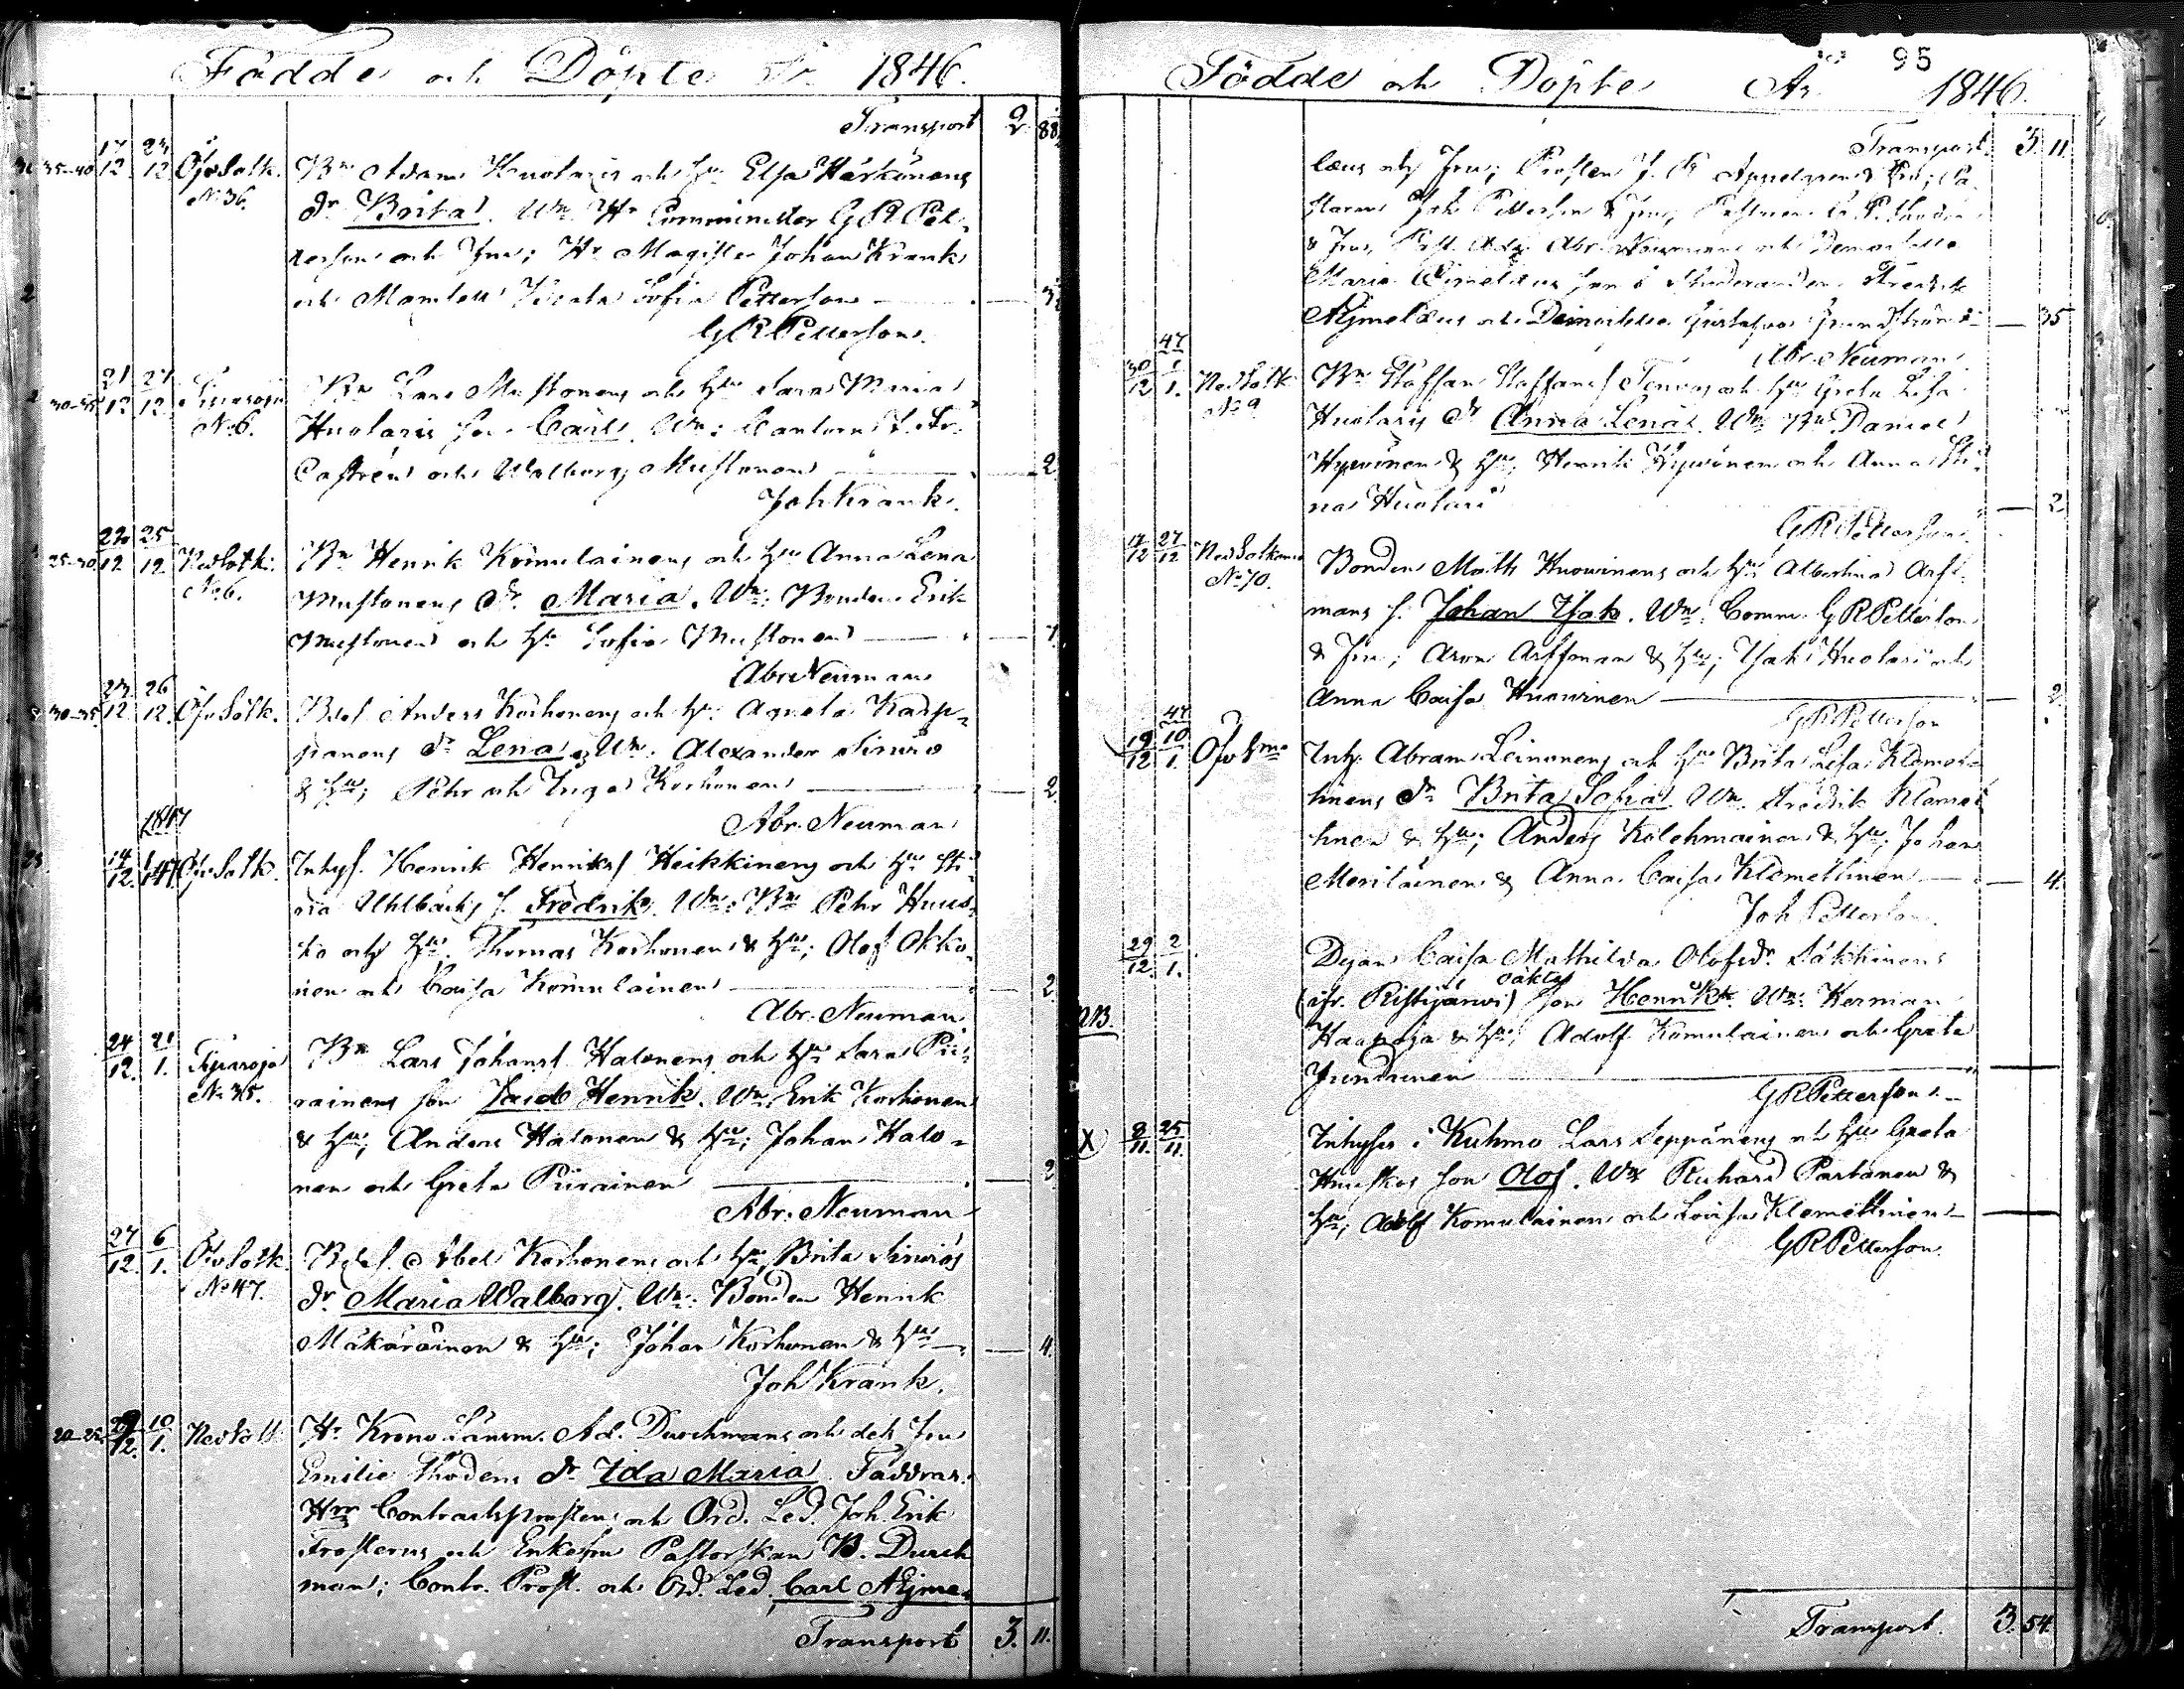 Födde och Döpte År 1846.
Transport 2 88
17 23
35-40 12 12 Öfv Sotk. Bn Adam Huolaris och Hu Elsa Härkönens
No 36. dr Brita. Wn Hr Comminister G R Pet-
terson och Fru; Hr Magister Johan Krank
och Mamsell Beata Sofia Petterson
G R Petterson.
21 27
30-35 12 12 Bn Lars Mustonens och Hu Sara Maria
No 6. Huolaris son Carl. Wn: Cantorn
Castrén och Walborg Mustonen 2
Joh Krank.
22 25
25-30 12 12 Ned Sotk. Bn Henrik Komulainens och Hu Anna Lena
No 6. Mustonens dr. Maria. Wn: Bonden Erik
Mustonen och Hu Sofia Mustonen
Abr. Neuman
23 26
30-35 12 12. Öfv Sotk. Anders Korhonens och Hu Agneta Karp-
panens dr Lena, Wn. Alexander Sirviö
& Hu; Pehr och Inga Korhonen 2
Abr. Neuman
1847
14 12. Öfv Sotk. Inhys. Henrik Henriks Heikkinens och Hu Sti-
na Uhlbäcks s. Fredrik. Wn: Bn Pehr Huus-
ko och Hu. Thomas Korhonen & Hu; Olof Okko-
nen och Caisa Komulainen 2
Abr. Neuman
24 21
12. 1. Tiparoja Bn Lars Johans Halonens och Hu Sara Pii-
No 35. rainens son Jacob Henrik. Wn. Erik Korhonen
& Hu; Anders Halonen & Hu; Johan Halo-
nen och Greta Piirainen 2
Abr. Neuman
27 6
12. 1. Öfv Sotk. Abel Korhonens och Hu Brita Sirviös
No 47. dr. Maria Walborg. Wn: Bonden Henrik
Mäkäräinen & Hu; Johan Korhonen & Hu 4.
Joh Krank.
29 10
20-25 12. 1. Ned Sotk Hr Krono Länsm. Ad. Durchmans och dess Fru
Emilie Thodens dr Ida Maria. Faddrar:
Hrr Contractsprosten och Ord. Led. Joh. Erik
Frosterus och Enkefru Pastorskan B. Durch
man; Contr. Prost. och Ord. Led. Carl Ajme-
Transport 3. 11.
95
Födde och Döpte År 1846.
Transport. 3. 11.
læus och Fru; Prosten J. Appelgren & Fru; Pa-
storn Joh Petterson & Fru; Pastorn
& Fru, Past. Adj. Abr. Neuman och Demoiselle
Maria Studeranden Fredrik
Ajmelæus och Demoiselle Gustafva 35
Abr. Neuman
47
30 1
12 1. Ned Sotk Bn Staffan Staffans och Hu Greta Lisa
No 9 Huolaris dr Anna Lena. Wn: Bn Daniel
Hyvönen & Hu; Henrik Hyvönen och Anna Sti-
na Huolari 2
G R Petterson
17 27
12 12 Ned Sotkamo Bonden Matts Huovinens och Hu Albertina Arf-
No 70. mans s. Johan Isak. Wn: Comm. G R Petterson
& Fru; Aron Arffman & Hu; Isak Huolari och
Anna Caisa Huovinen 2.
G R Petterson
47
19 10
12 1. Inh. Abram Leinonens och Hu Brita Lisa Klemet-
tinens dr Brita Sofia. Wn. Fredrik Klemet-
tinen & Hu; Anders Kolehmainen & Hu; Johan
Meriläinen & Anna Caisa Klemettinen 4.
Joh Petterson.
29 2
12. 1. Caisa Mathilda Olofsdr. Säkkinens
(ifr. Ristijärvi) oäkta son Henrik. Wn: Herman
NB. Haapoja & Hu; Adolf Komulainen och Greta
Juntunen
G R Petterson.
X 8 25
11. 11. Inhyses i Kuhmo Lars Seppänens och Hu Greta
Huuskos son Olof. Wn Richard Partanen &
Hu; Adolf Komulainen och Lovisa Klemettinen
G R Petterson.
Transport. 3. 54.